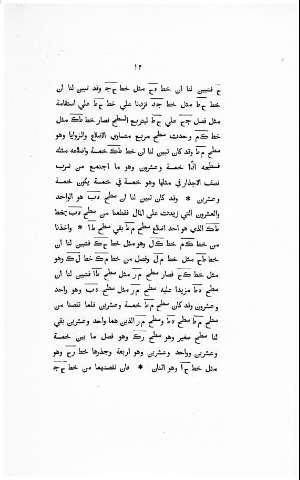 ١٢
ح فتبين لنا ان خط دح مثل خط حج وقد تبين لنا ان
خط حط مثل خط جد فزدنا علي خط حط علي استقامة
مثل فصل جح علي حط ليتربع السطح فصار خط طك مثل
خط كم وحدثت سطح مربع متساوي الاضلاع والزوايا وهو
سطح مط وقد كان تبين لنا ان خط طك خمسة واضلاعه مثله
فسطحه اذا خمسة وعشرون وهو ما اجتمع من ضرب
نصف الاجذار في مثلها وهو خمسة في خمسة يكون خمسة
وعشرين * وقد كان تبين لنا ان سطح دب هو الواحد
والعشرون التي زيدت علي المال فقطعنا من سطح دب بخط
طك الذي هو احد اضلاع سطح مط بقي سطح طا * واخذنا
من خط كم خط كل وهو مثل خط حك فتبين لنا ان
خط طح مثل خط مل وفضل من خط مك خط لك وهو
مثل خط كح فصار سطح مر مثل سطح طا فتبين لنا ان
سطح دط مزيدا عليه سطح مر مثل سطح دب وهو واحد
وعشرون وقد كان سطح مط خمسة وعشرين فلما نقصنا من
سطح مط سطح دط وسطح مر الذين هما واحد وعشرين بقي
لنا سطح صغير وهو سطح رك وهو فصل ما بين خمسة
وعشرين وواحد وعشرين وهو اربعة وجذرها خط رح وهو
مثل خط حا وهو اثنان * فان نقصتهما من خط حج